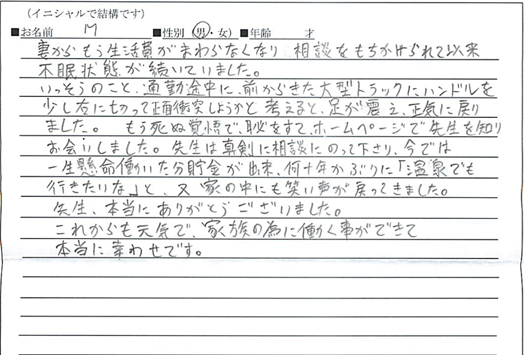 (イニシャルで結構です)
■お名前 M ■性別(男・女)■年齢 才
妻からもう生活費がまわらなくなり相談をもちかけられて以来
不眠状態が続いていました。
いっそうのこと、通勤途中に、前からきた大型トラックにハンドルを
少し右にもって正面衝突しようかと考えると、足が震え、正気に戻り
ました。 もう死ぬ覚悟で、恥をすて、ホームページで先生を知り
お会いしました。先生は真剣に相談にのって下さり、今では
一生懸命働いた分貯金が出来、何十年かぶりに「温泉でも
行きたいな」と、又家の中にも笑い声が戻ってきました。
先生、本当にありがとうございました。
これからも元気で、家族の為に働く事ができて
本当に幸わせです。